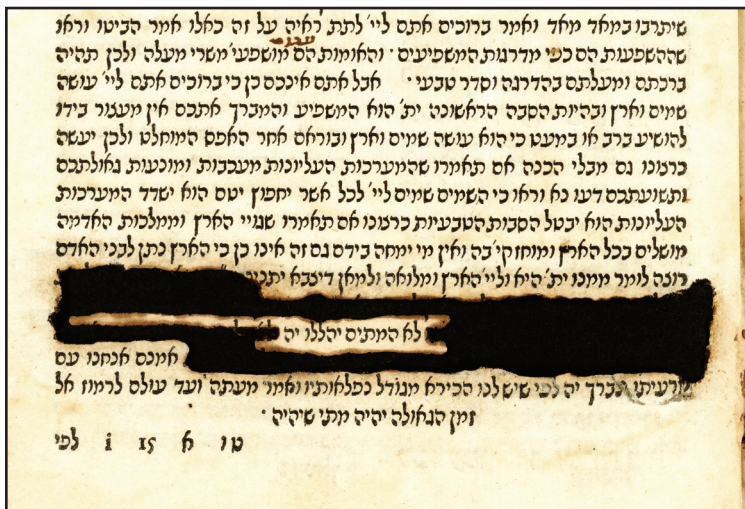 שיתרבו במאד מאד ואמר ברוכים אתם ליי׳ לתת ראיה על זה כאלו אמר הביטו וראו
שההשפעות הם כפי מדרגות המשפיעים · והאומות הם מושפעי׳ משרי מעלה ולכן תהיה
ברכתם ומעלתם בהדרגה וסדר טבעי · אבל אתם אינכם כן כי ברוכים אתם ליי׳ עושה
שמים וארץ ובהיות הסבה הראשונה ית׳ הוא המשפיע והמברך אתכם אין מעצור בידו
להושיע ברב או במעט כי הוא עושה שמים וארץ ובוראם אחר האפס המוחלט ולכן יעשה
כרצונו גם מבלי הכנה אם תאמרו שהמערכות העליונות מעכבות ומונעות גאולתכם
ותשועתכם דעו נא וראו כי השמים שמים ליי׳ לכל אשר יחפוץ יטם הוא ישדד המערכות
העליונות הוא יבטל הסבות הטבעיות כרצונו אם תאמרו שגויי הארץ וממלכות האדמה
מושלים בכל הארץ ומוחזקי׳ בה ואין מי ימחה בידם גם זה אינו כן כי הארץ נתן לבני האדם
רוצה לומר ממנו ית׳ היא וליי׳ הארץ ומלואה ולמאן דיצבא
לא המתים יהללו יה
אמנם אנחנו עם
נברך יה לפי שיש לנו הכירא מגודל נפלאותיו ואמר מעתה ועד עולם לרמוז אל
זמן הגאולה יהיה מתי שיהיה ·
טו א 15 i לפי